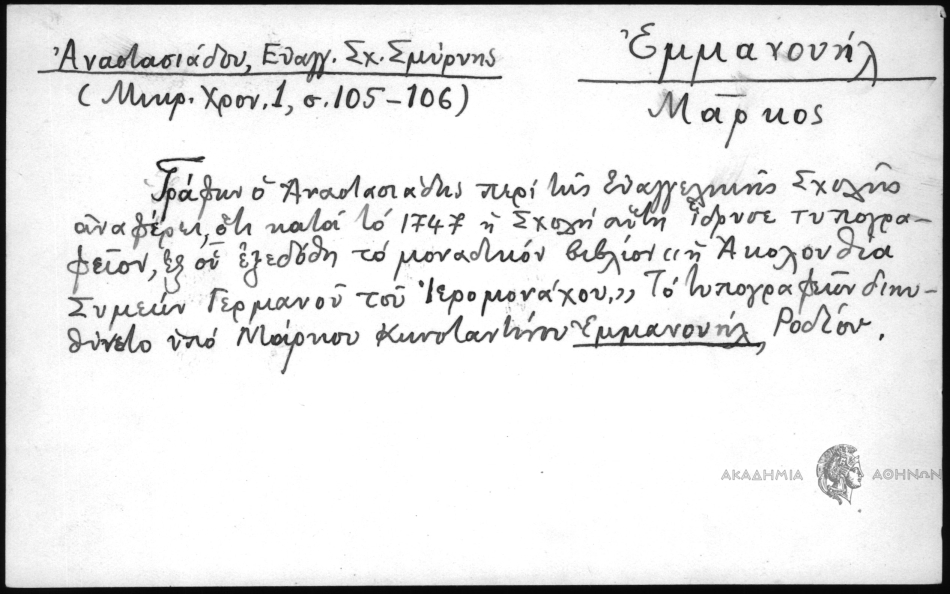 Ἀναστασιάδου, Εὐαγγ. Σχ. Σμύρνης
(Μικρ. Χρον. 1, σ. 105-106)
Ἐμμανουήλ
Μάρκος
Γράφων ὁ Ἀναστασιάδης περί τῆς Εὐαγγελικῆς Σχολῆς
ἀναφέρει, ὅτι κατά τό 1747 ἡ Σχολή αὕτη ἵδρυσε τυπογρα-
φεῖον, ἐξ οὗ ἐξεδόθη τό μοναδικόν βιβλίον «ἡ Ἀκολουθία
Συμεών Γερμανοῦ τοῦ Ἱερομονάχου,» Τό τυπογραφεῖον διηυ-
θύνετο ὑπό Μάρκου Κωνσταντίνου Ἐμμανουήλ, Ροδίου.
ΑΚΑΔΗΜΙΑ ΑΘΗΝΩΝ